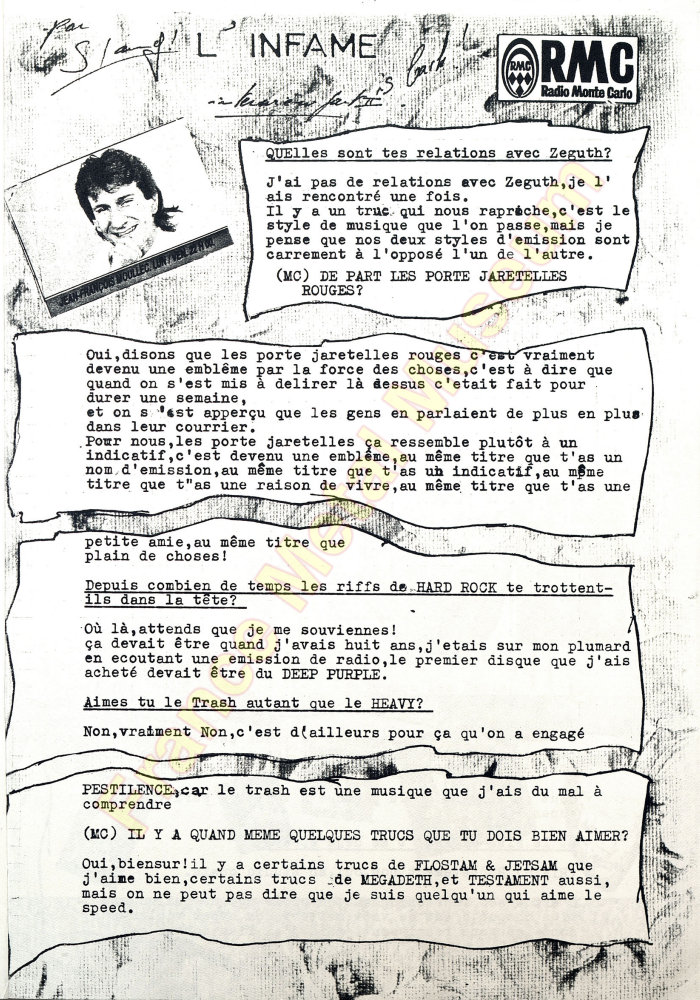 par
Slang!
L'INFAME
is back!
RMC
RMC
Radio Monte Carlo
JEAN-FRANÇOIS
QUElles sont tes relations avec Zeguth?
J'ai pas de relations avec Zeguth,je l'
ais rencontré une fois.
Il y a un truc qui nous rapröche,c'est le
style de musique que l'on passe,mais je
pense que nos deux styles d'emission sont
carrement à l'opposé l'un de l'autre.
(MC) DE PART LES PORTE JARETELLES
ROUGES?
Oui,disons que les porte jaretelles rouges c'est vraiment
devenu une emblême par la force des choses,c'est à dire que
quand on s'est mis à delirer là dessus c'etait fait pour
durer une semaine,
et on s 'est apperçu que les gens en parlaient de plus en plus
dans leur courrier.
Pour nous,les porte jaretelles ça ressemble plutôt à un
indicatif,c'est devenu une emblême,au même titre que t'as un
nom d'emission,au même titre que t'as un indicatif,au même
titre que t"as une raison de vivre,au même titre que t'as une
petite amie,au même titre que
plain de choses!
Depuis combien de temps les riffs de HARD ROCK te trottent-
ils dans la tête?
Où là,attends que je me souviennes!
ça devait être quand j'avais huit ans,j'etais sur mon plumard
en ecoutant une emission de radio,le premier disque que j'ais
acheté devait être du DEEP PURPLE.
Aimes tu le Trash autant que le HEAVY?
Non,vraiment Non,c'est d'ailleurs pour ça qu'on a engagé
PESTILENCE,car le trash est une musique que j'ais du mal à
comprendre
(MC) IL Y A QUAND MEME QUELQUES TRUCS QUE TU DOIS BIEN AIMER?
Oui,biensur!il y a certains trucs de FLOSTAM & JETSAM que
j'aime bien,certains trucs de MEGADETH,et TESTAMENT aussi,
mais on ne peut pas dire que je suis quelqu'un qui aime le
speed.
France Metal Museum